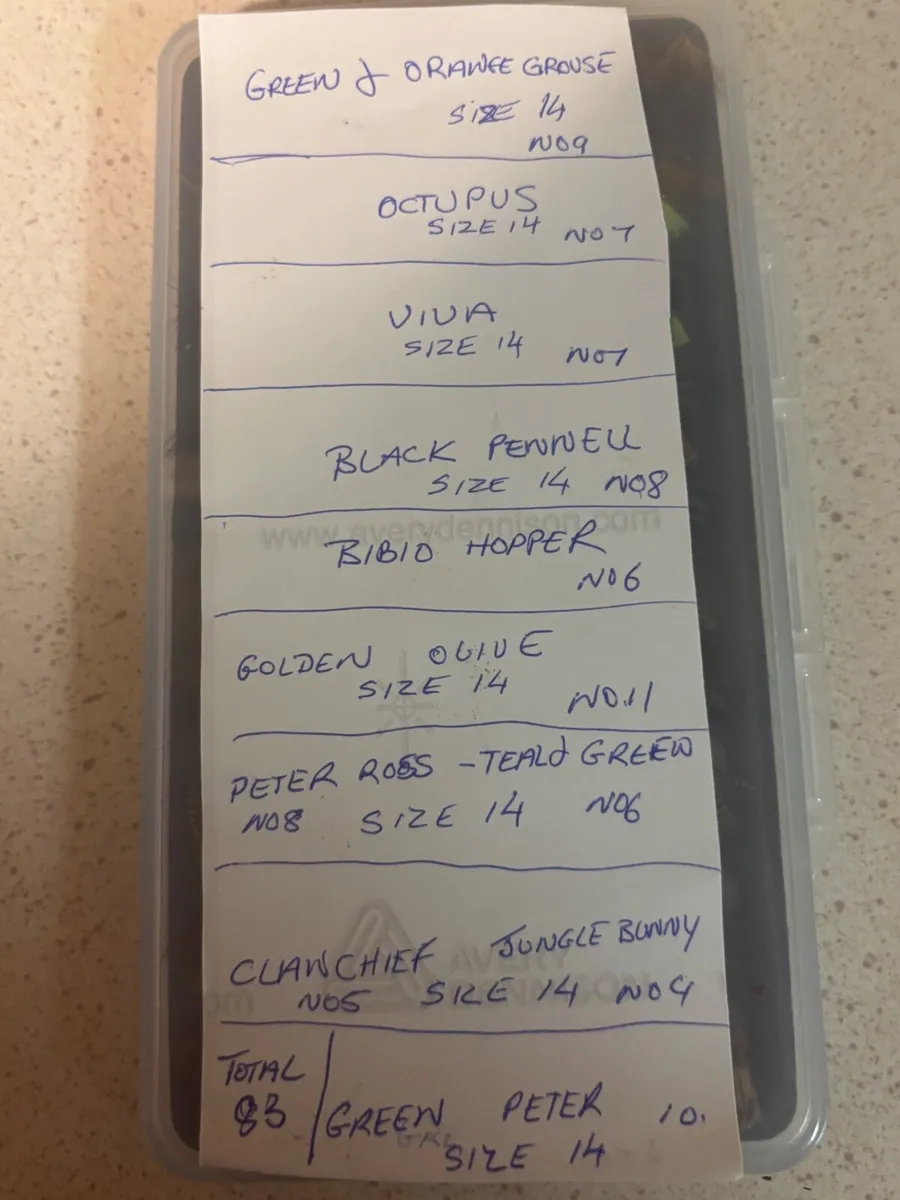 GREEN & ORANGE GROUSE
SIZE 14
NO9
OCTUPUS
SIZE 14 NO 7
VIVA
SIZE 14 NO7
BLACK PENNELL
SIZE 14 NO8
www.averydennison.com
BIBIO HOPPER
NO6
GOLDEN OLIVE
SIZE 14
NO.11
PETER ROSS - TEAL & GREEN
NO8 SIZE 14 NO6
JUNGLE BUNNY
CLANCHIEF
AVERY
DENNISON
NO5 SIZE 14 NO4
TOTAL
83
GREEN PETER 10.
SIZE 14